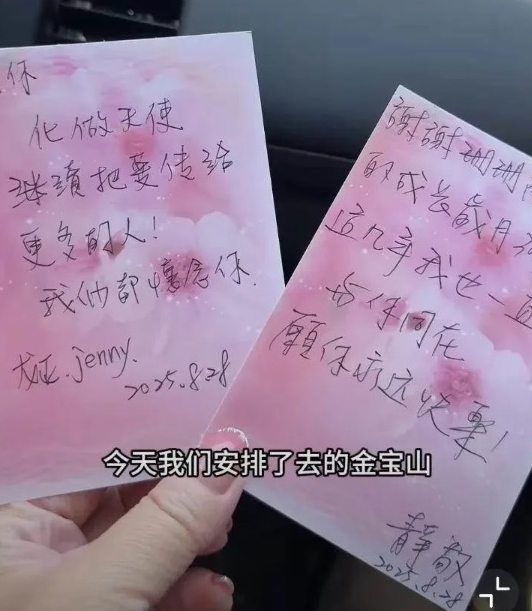 你
化做天使
继續把愛传给
更多的人!
我们都懷念你.
jenny.
2025.8.28
謝謝珊珊
的成长歲月
這几年我也一直
与你同在
願你永远快樂!
靜敏
2025.8.28
今天我们安排了去的金宝山